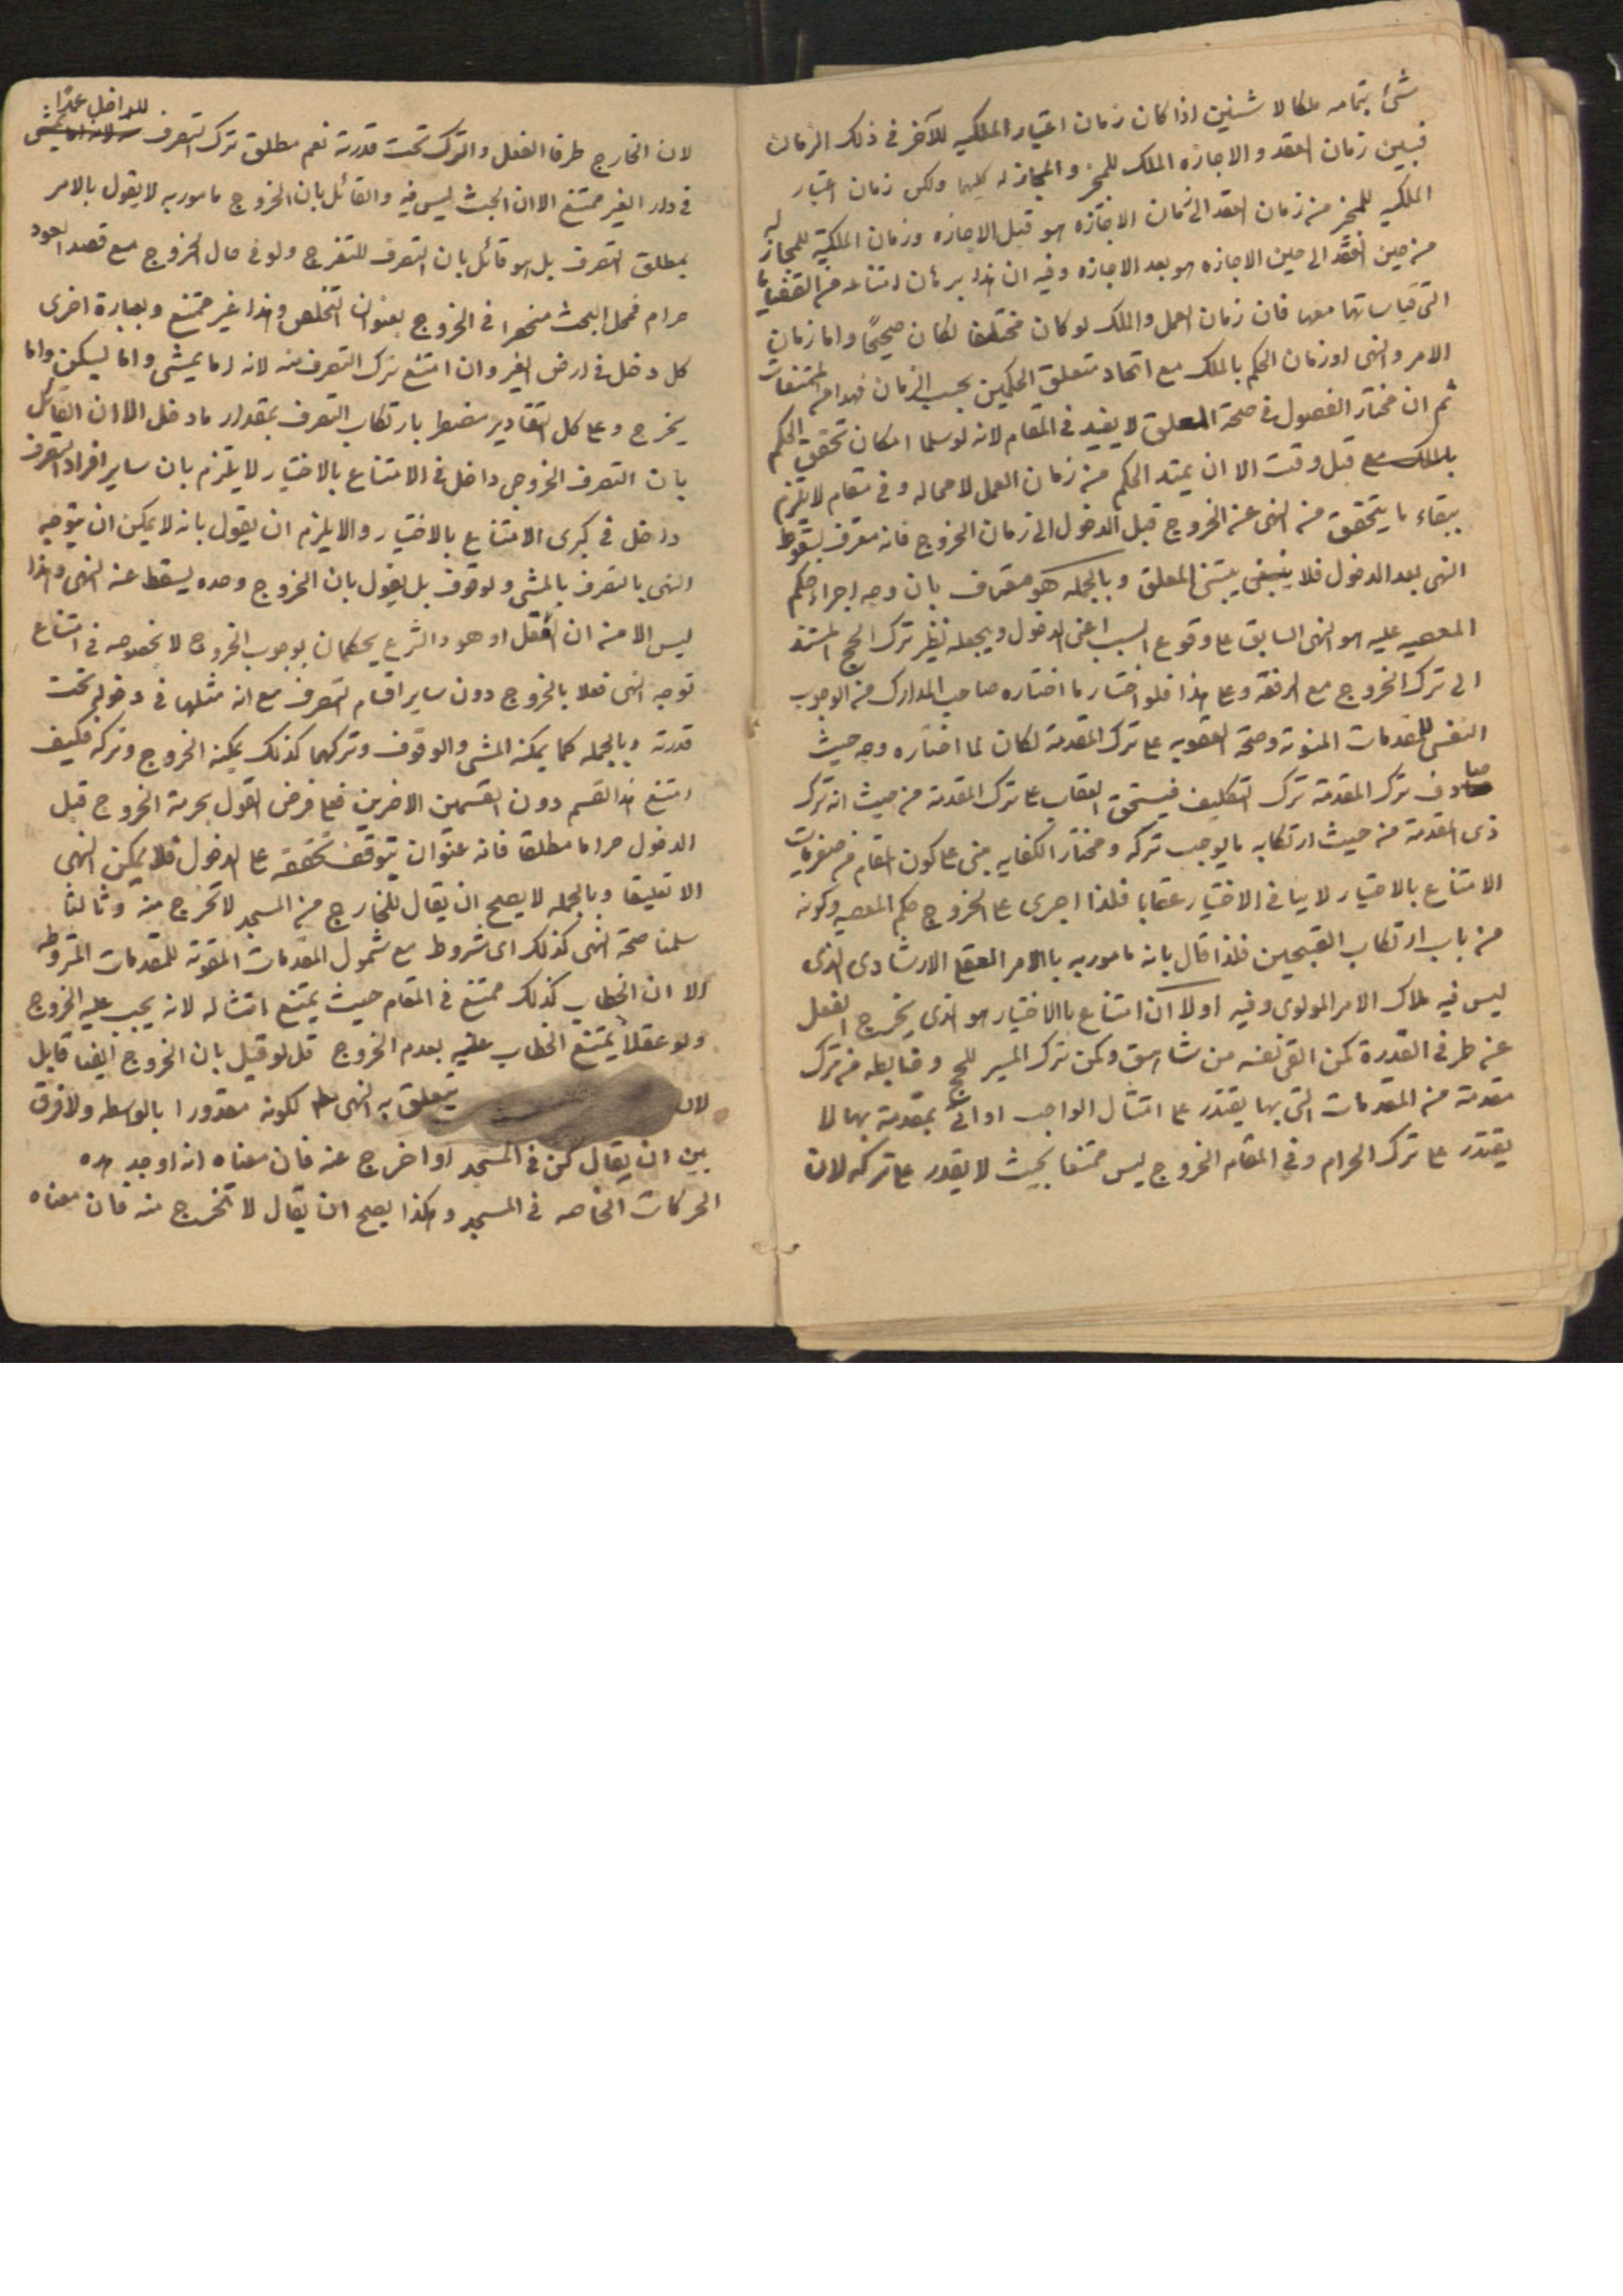 شئ بتمامه ملكا لاثنين اذا كان زمان اعتبار الملكيه للآخر فى ذلك الزمان
فبين زمان العقد والاجازه الملك للمجيز والمجاز له كليهما ولكن زمان اعتبار
الملكيه للمجيز من زمان العقد الى زمان الاجازه هو قبل الاجازه وزمان الملكية للمجاز له
من حين العقد الى حين الاجازه هو بعد الاجازه وفيه ان هذا برهان امتناعه من القضايا
التى قياساتها معها فان زمان العمل والملك لو كان مختلفا لكان صحيحًا واما زمان
الامر والنهى او زمان الحكم بالملك مع اتحاد متعلق الحكمين بحسب الزمان فهو من الممتنعات
ثم ان مختار الفصول فى صحة المعلق لا يفيد فى المقام لانه لو سلما امكان تحقق الحكم
قبل وقت الا ان يمتد الحكم من زمان العمل لا محاله وفى مقام لا يلتزم
ببقاء ما يتحقق من النهى عن الخروج قبل الدخول الى زمان الخروج فانه معترف بسقوط
النهى بعد الدخول فلا ينبغى يبتنى المعلق وبالجمله هو معترف بان وجه اجراء حكم
المعصيه عليه هو النهى السابق على وقوع السبب اعنى الدخول ويجعله نظير ترك الحج المستند
الى ترك الخروج مع الرفقة وعلى هذا فلو اختار ما اختاره صاحب المدارك من الوجوب
النفسى للمقدمات المفوتة وصحة العقوبه على ترك المقدمة لكان لما اختاره وجه حيث
صادف ترك المقدمة ترك التكليف فيستحق العقاب على ترك المقدمة من حيث انه ترك
ذى المقدمة من حيث ارتكابه ما يوجب تركه ومختار الكفايه مبنى على كون المقام من صغريات
الامتناع بالاختيار لا ينافى الاختيار عقابا فلذا اجرى على الخروج حكم المعصيه وكونه
من باب ارتكاب القبيحين فلذا قال بانه مامور به بالامر العقلى الارشادى الذى
ليس فيه ملاك الامر المولوى وفيه اولا ان امتناع بالاختيار هو الذى يخرج الفعل
عن طرفى القدرة كمن القى نفسه من شاهق وكمن ترك المسير للحج وضابطه من ترك
مقدمة من المقدمات التى بها يقتدر على امتثال الواجب او اتى بمقدمة بها لا
يقتدر على ترك الحرام وفى المقام الخروج ليس ممتنعا بحيث لا يقدر على تركه لان
لان الخارج طرفا الفعل والترك تحت قدرته نعم مطلق ترك التصرف للداخل عمدًا
فى دار الغير ممتنع الا ان البحث ليس فيه والقائل بان الخروج مامور به لا يقول بالامر
بمطلق التصرف بل هو قائل بان التصرف للتفرج ولو فى حال الخروج مع قصد العود
حرام فمحل البحث منحصر فى الخروج بعنوان التخلص وهذا غير ممتنع وبعبارة اخرى
كل دخل فى ارض الغير وان امتنع ترك التصرف منه لانه اما يمشى واما يسكن واما
يخرج وعلى كل التقادير مضطر بارتكاب التصرف بمقدار ما دخل الا ان القائل
بان التصرف الخروجى داخل فى الامتناع بالاختيار لا يلتزم بان ساير افراد التصرف
داخل فى كبرى الامتناع بالاختيار والا يلزم ان يقول بانه لا يمكن ان يتوجه
النهى بالتصرف بالمشى ولوقوف بل يقول بان الخروج وحده يسقط عنه النهى وهذا
ليس الا من ان العقل او هو والشرع يحكمان بوجوب الخروج لا لخصوصه فى امتناع
توجه النهى فعلا بالخروج دون ساير اقسام التصرف مع انه مثلها فى دخوله تحت
قدرته وبالجمله كما يمكنه المشى والوقوف وتركهما كذلك يمكنه الخروج وتركه فكيف
امتنع هذا القسم دون القسمين الاخرين فعلى فرض القول بحرمة الخروج قبل
الدخول حراما مطلقا فانه عنوان يتوقف تحققه على الدخول فلا يمكن النهى
الا تعليقا وبالجمله لا يصح ان يقال للخارج من المسجد لا تخرج منه وثالثا
سلمنا صحة النهى كذلك اى مشروط مع شمول المقدمات المفوتة للمقدمات المشروطه
الا ان الخطاب كذلك ممتنع فى المقام حيث يمتنع امتثاله لانه يجب عليه الخروج
ولو عقلاً يمتنع الخطاب عليه بعدم الخروج قل لو قيل بان الخروج ايضا قابل
لان يتعلق به النهى لكونه مقدورا بالواسطه ولا فرق
بين ان يقال كن فى المسجد او اخرج عنه فان معناه انه اوجد هذه
الحركات الخاصه فى المسجد وهكذا يصح ان يقال لا تخرج منه فان معناه